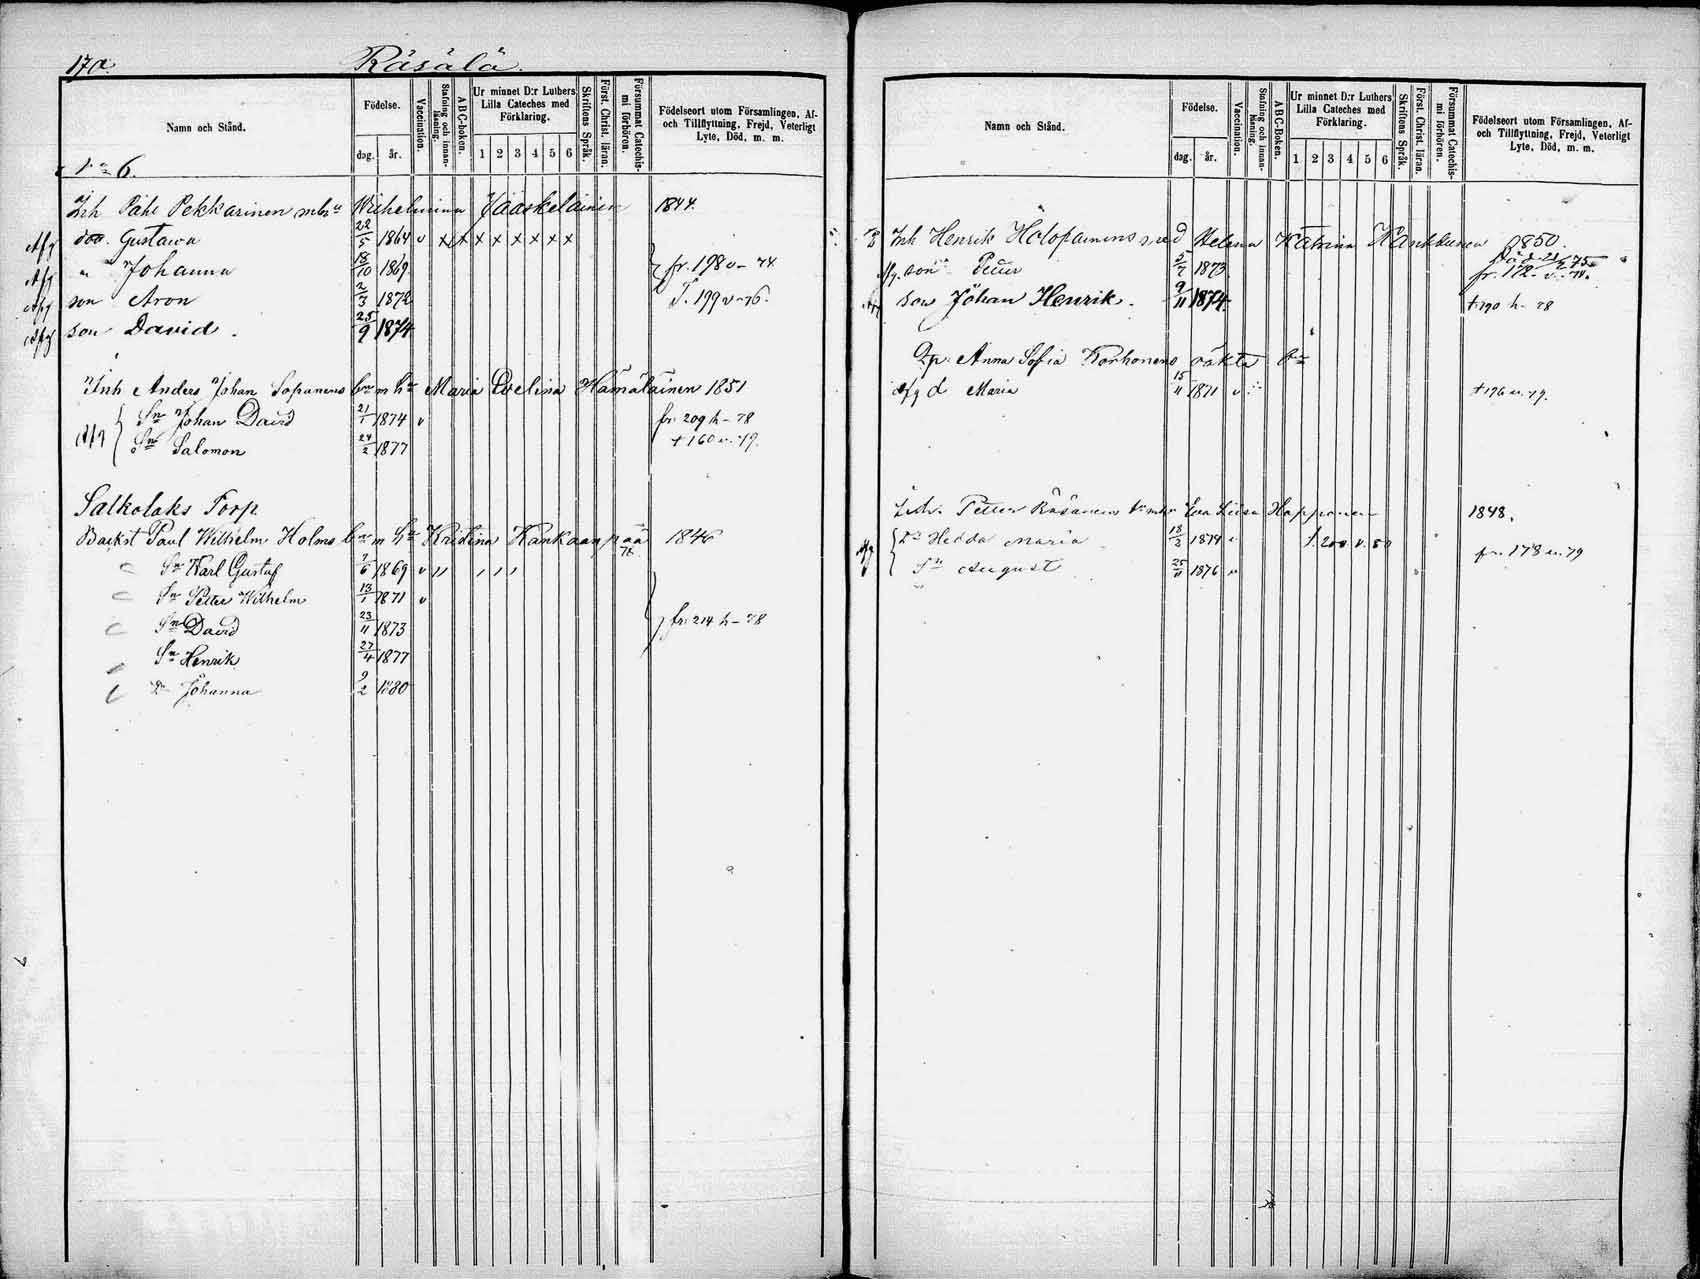 170.
Räsälä.
Namn och Stånd.
Födelse.
dag. år.
Vaccination.
Stafning och innan-läsning.
A B C-boken.
Ur minnet D:r Luthers Lilla Cateches med Förklaring.
1 2 3 4 5 6
Skriftens Språk.
Först. Christ. läran.
Försummat Catechismi förhören.
Födelseort utom Församlingen, Af- och Tillflyttning, Frejd, Veterligt Lyte, Död, m. m.
No 6.
Inh Påhl Pekkarinen m hu Wilhelmina Jääskeläinen 1844.
Afg dotr. Gustawa 22/5 1864 v x x x x x x x x
Afg " Johanna 18/10 1869 } fr. 198 v - 74
Afg son Aron 2/3 1872 T. 199 v - 76.
Afg son David. 25/9 1874
Inh Anders Johan Sopanens bn m hu Maria Evelina Hämäläinen 1851
Afg { Sn Johan David 21/1 1874 v fr. 209 h - 78
Sn Salomon 24/2 1877 + 160 v. 79.
Salkolaks Torp
Backst Paul Wilhelm Holms bn m hu Kristina Kankaanpää 1846
Sn Karl Gustaf 7/6 1869 v
Sn Petter Wilhelm 13/1 1871 v
Sn David 23/11 1873 } fr. 214 h - 78
Sn Henrik 27/4 1877
Dr Johanna 9/2 1880
Namn och Stånd.
Födelse.
dag. år.
Vaccination.
Stafning och innan-läsning.
A B C-Boken.
Ur minnet D:r Luthers Lilla Cateches med Förklaring.
1 2 3 4 5 6
Skriftens Språk.
Först. Christ. läran.
Försummat Catechismi förhören.
Födelseort utom Församlingen, Af- och Tillflyttning, Frejd, Veterligt Lyte, Död, m. m.
Inh Henrik Holopainens med Helena Katrina Kankkunen 1850.
Afg. son Petter 5/7 1873 fr. 172 v. 74.
son Johan Henrik. 9/11 1874 + 190 h - 78
Qp. Anna Sofia Korhonens oäkta bn
Afg d Maria 15/11 1871 v + 176 v. 79.
Inh. Petter Räsänens bn m hu Eva Luisa Happonen 1848.
Afg { Dr Hedda Maria 18/3 1874 f. 200 v. 80 fr. 178 v. 79
Sn August 25/11 1876